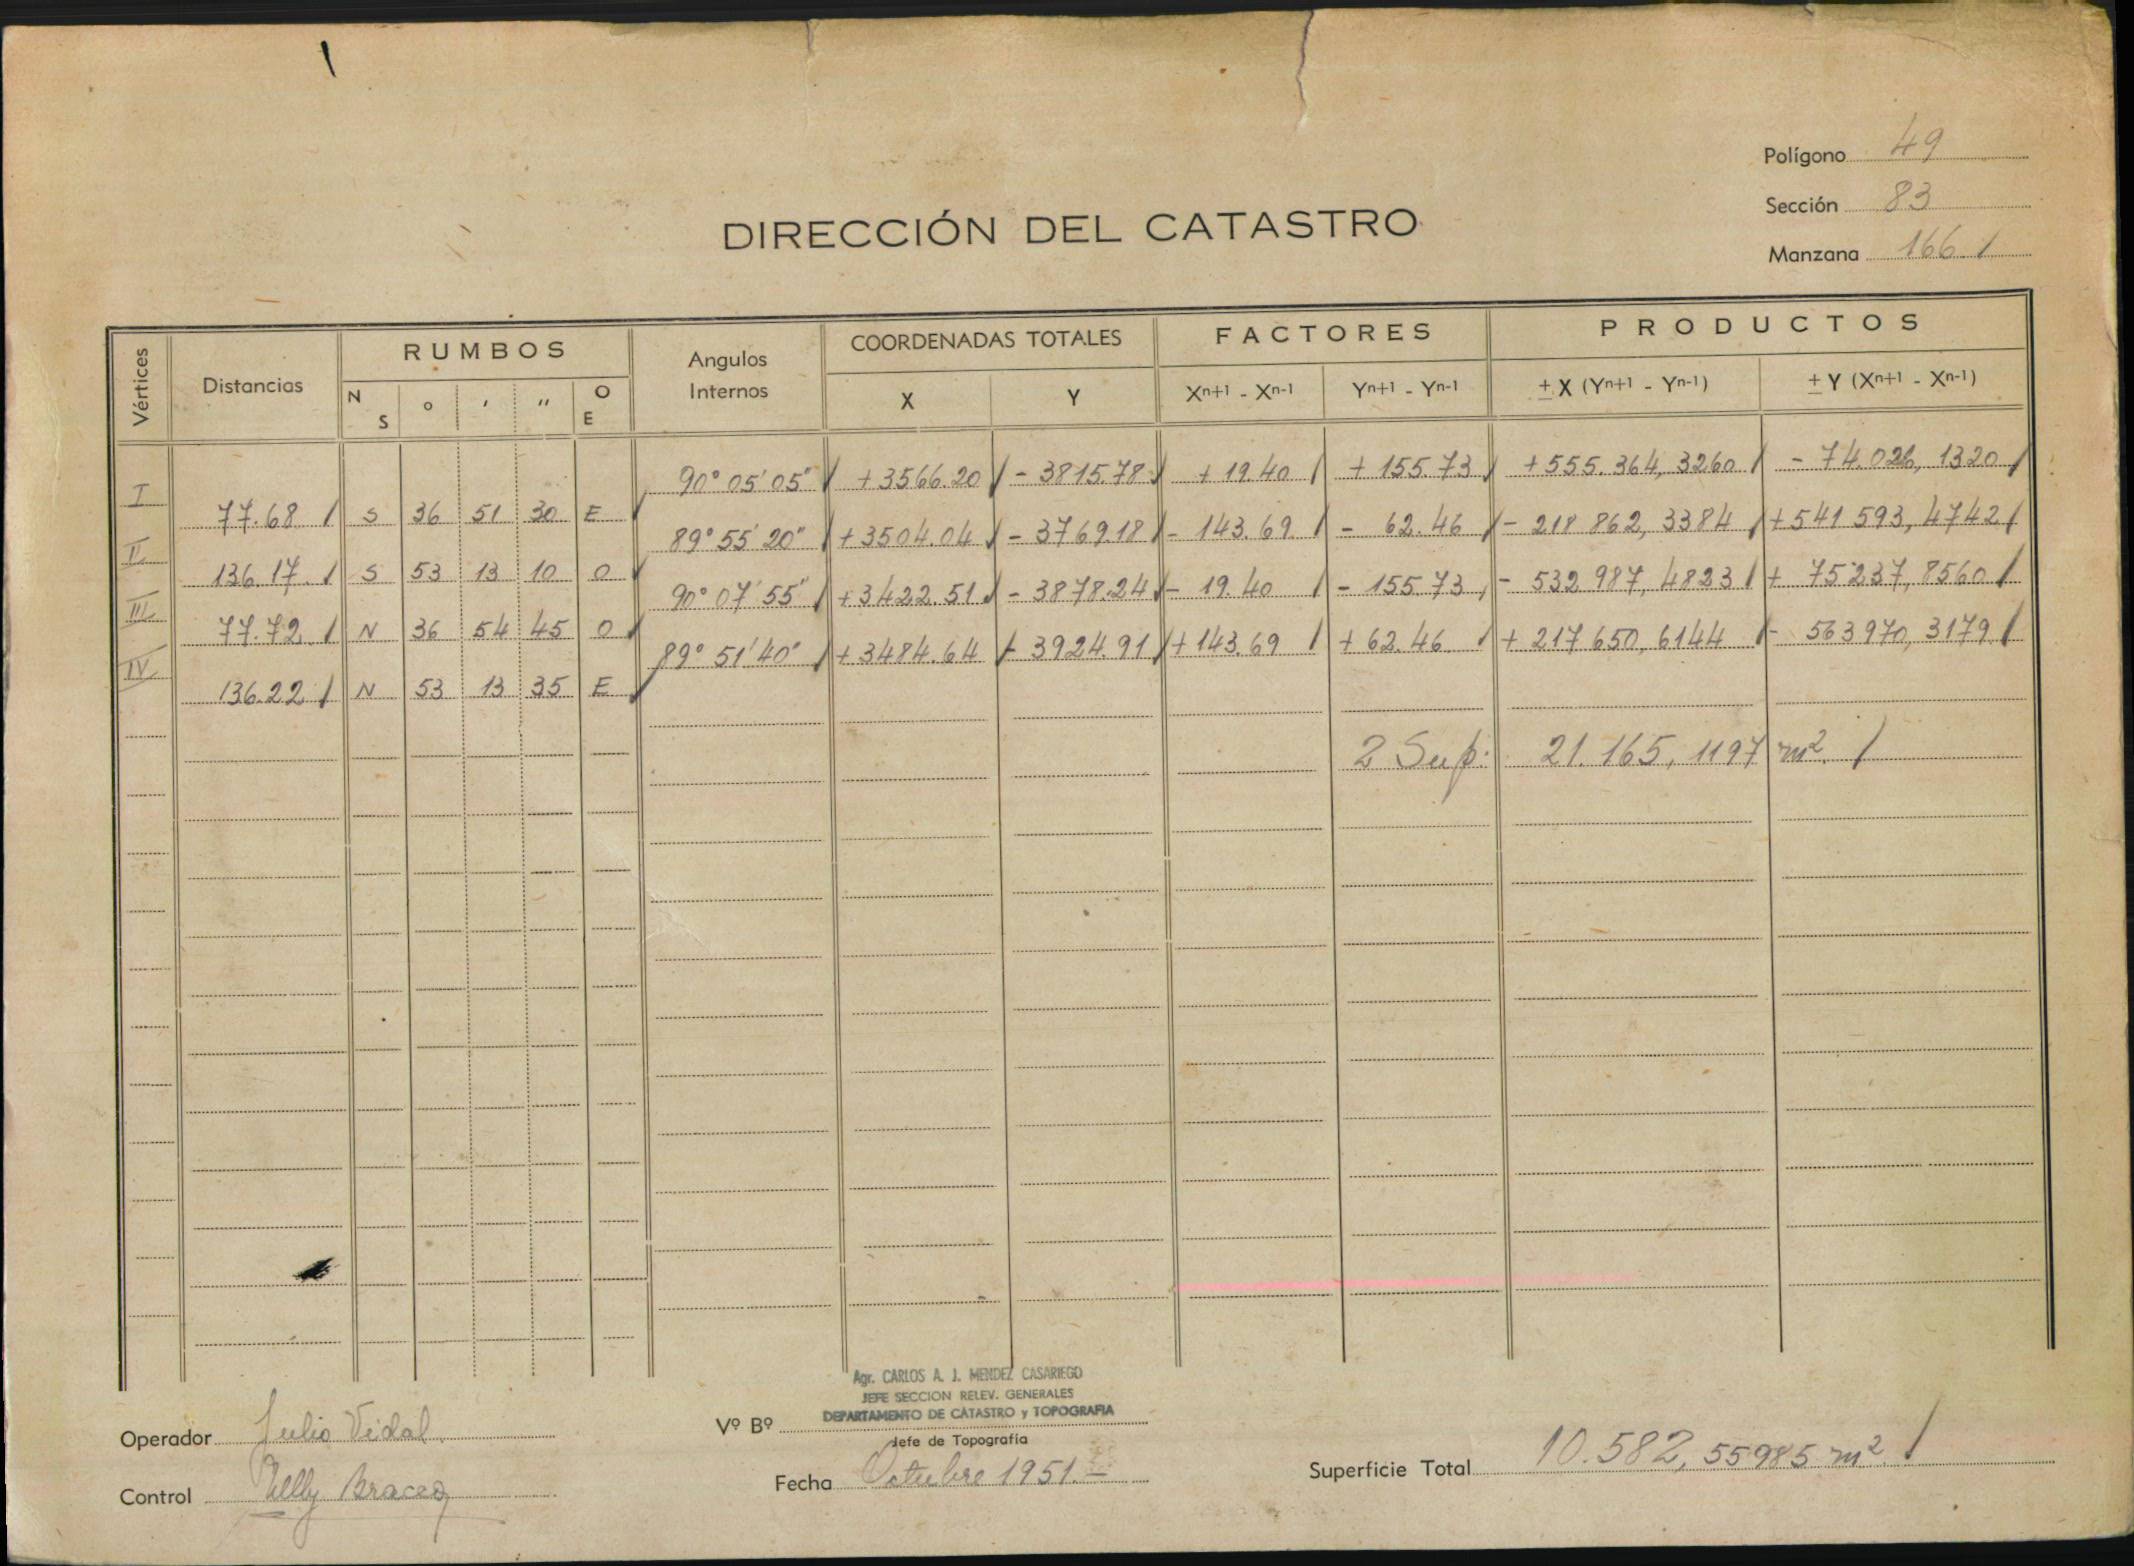 Polígono 49
Sección 83
DIRECCIÓN DEL CATASTRO
Manzana 166
Vértices Distancias RUMBOS Angulos Internos COORDENADAS TOTALES FACTORES PRODUCTOS
N S ° ' '' O E X Y Xn+1 - Xn-1 Yn+1 - Yn-1 ± X (Yn+1 - Yn-1) ± Y (Xn+1 - Xn-1)
I 90° 05' 05" +3566.20 - 3815.78 + 19.40 + 155.73 +555.364,3260 - 74.026,1320
77.68 S 36 51 30 E
II 89° 55' 20" +3504.04 - 3769.18 - 143.69 - 62.46 - 218 862,3384 +541 593,4742
136.17 S 53 13 10 O
III 90° 07' 55" +3422.51 - 3878.24 - 19.40 - 155.73 - 532 987,4823 + 75 237,8560
77.72 N 36 54 45 O
IV 89° 51' 40" +3484.64 - 3924.91 +143.69 + 62.46 + 217 650,6144 - 563 970,3179
136.22 N 53 13 35 E
2 Sup: 21.165,1197 m²
Agr. CARLOS A. J. MENDEZ CASARIEGO
JEFE SECCION RELEV. GENERALES
DEPARTAMENTO DE CATASTRO y TOPOGRAFIA
Operador Julio Vidal
Vº Bº
Jefe de Topografía
Control Nelly Bracco
Fecha Octubre 1951.-
Superficie Total 10.582,55985 m²